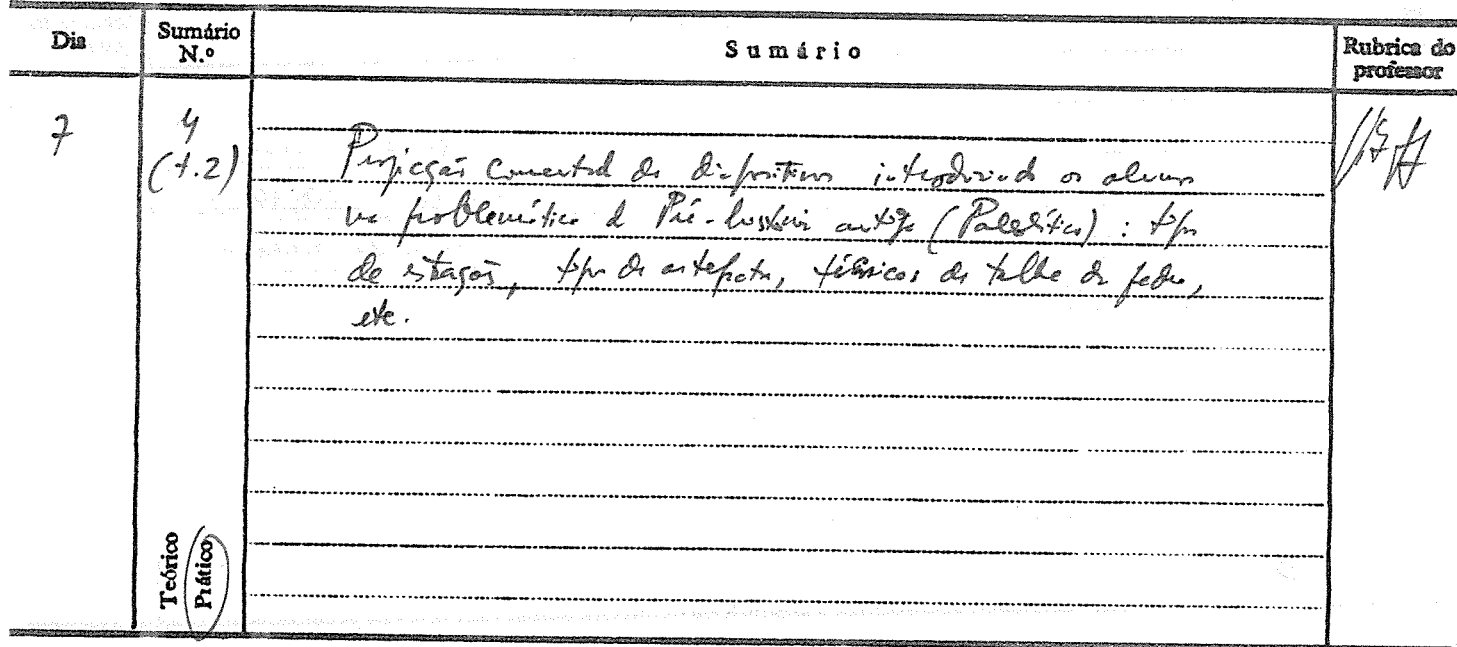 Dia
Sumário N.º
Sumário
Rubrica do professor
7
4
(t.2)
Projecção comentada de diapositivos introduzindo os alunos
na problemática da Pré-história antiga (Paleolítico): tipos
de estações, tipos de artefactos, técnicas de talhe da pedra,
etc.
Teórico
Prático